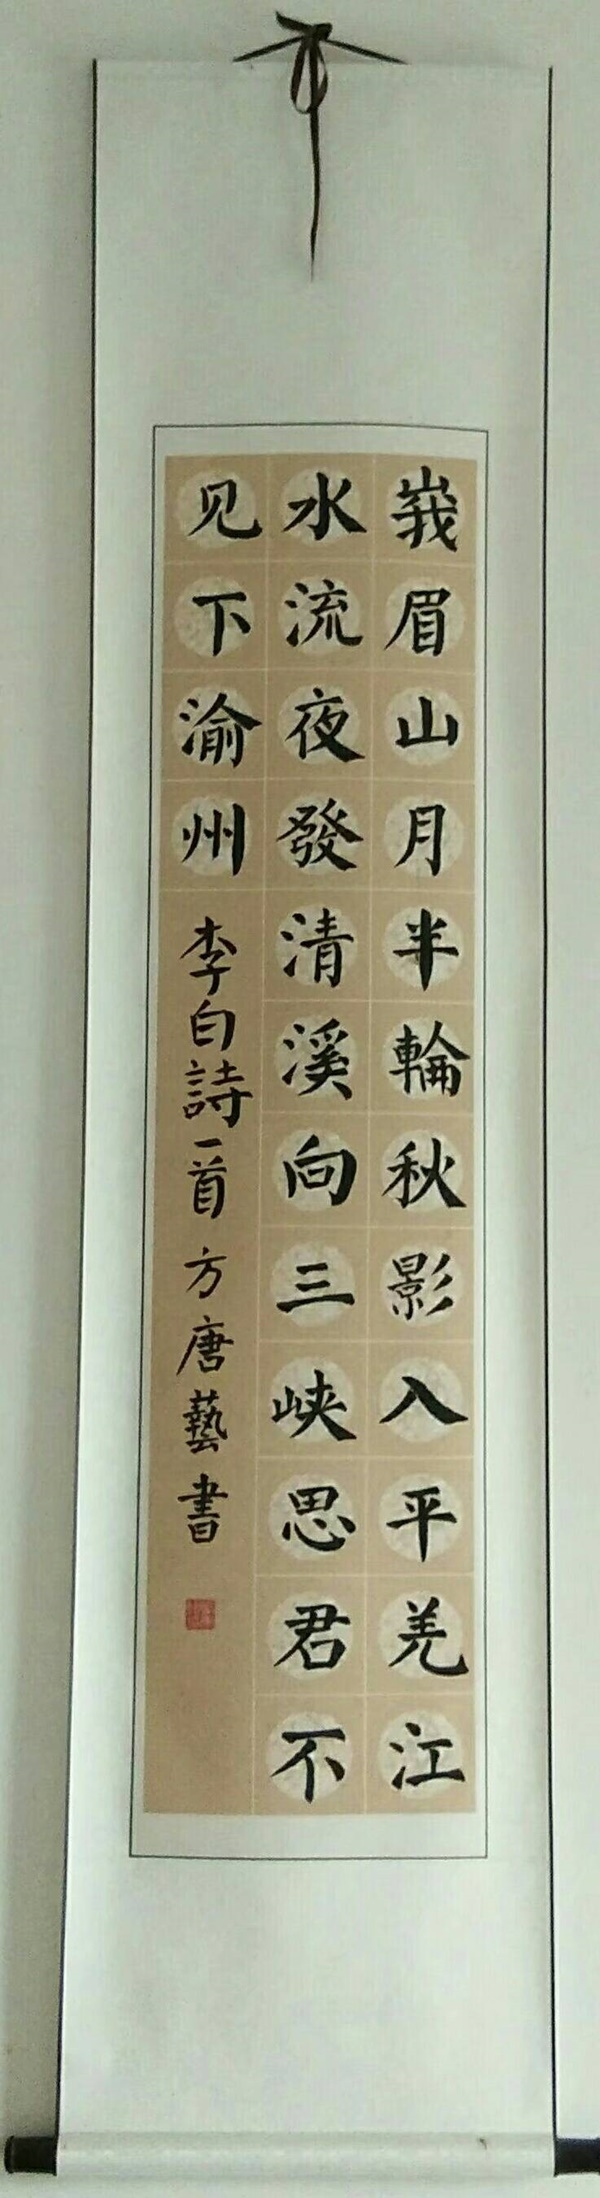 峩眉山月半輪秋影入平羌江
水流夜發清溪向三峡思君不
见下渝州李白詩一首方唐藝書